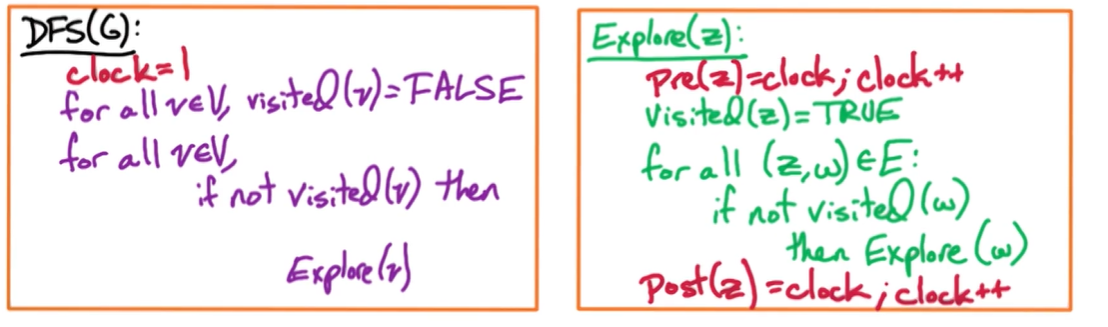 DFS(G):
clock=1
for all v∈V, visited(v)=FALSE
for all v∈V,
if not visited(v) then
Explore(v)
Explore(z):
Pre(z)=clock; clock++
visited(z)=TRUE
for all (z,w)∈E:
if not visited(w)
then Explore(w)
Post(z)=clock; clock++